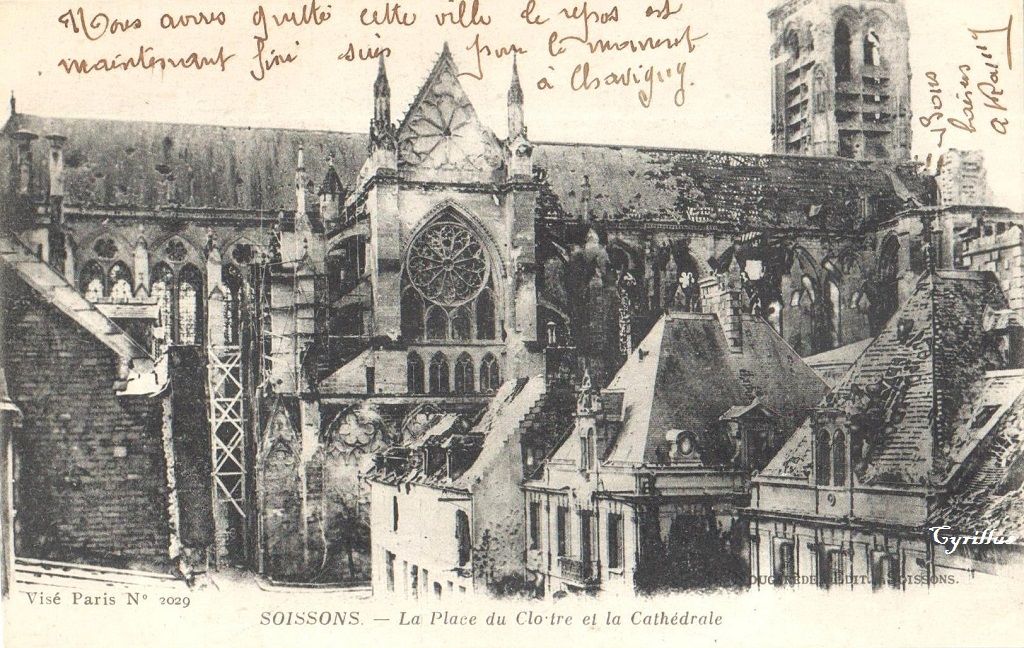 Nous avons quitté cette ville le repos est
maintenant fini suis pour le moment
à Chavigny.
Bons
baisers
Cyrillus
EDIT. SOISSONS.
Visé Paris N° 2029
SOISSONS. — La Place du Cloître et la Cathédrale